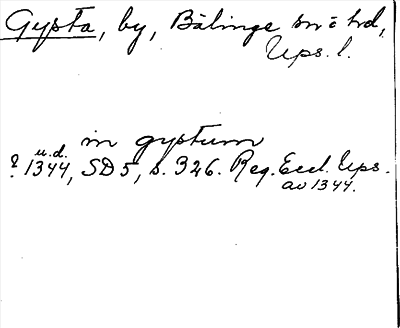 Gypsta, by, Bälinge sn o hd,
Ups. l.
in gystum
u.d.
? 1344, SD 5, s. 326. Reg. Eccl. Ups.
av 1344.